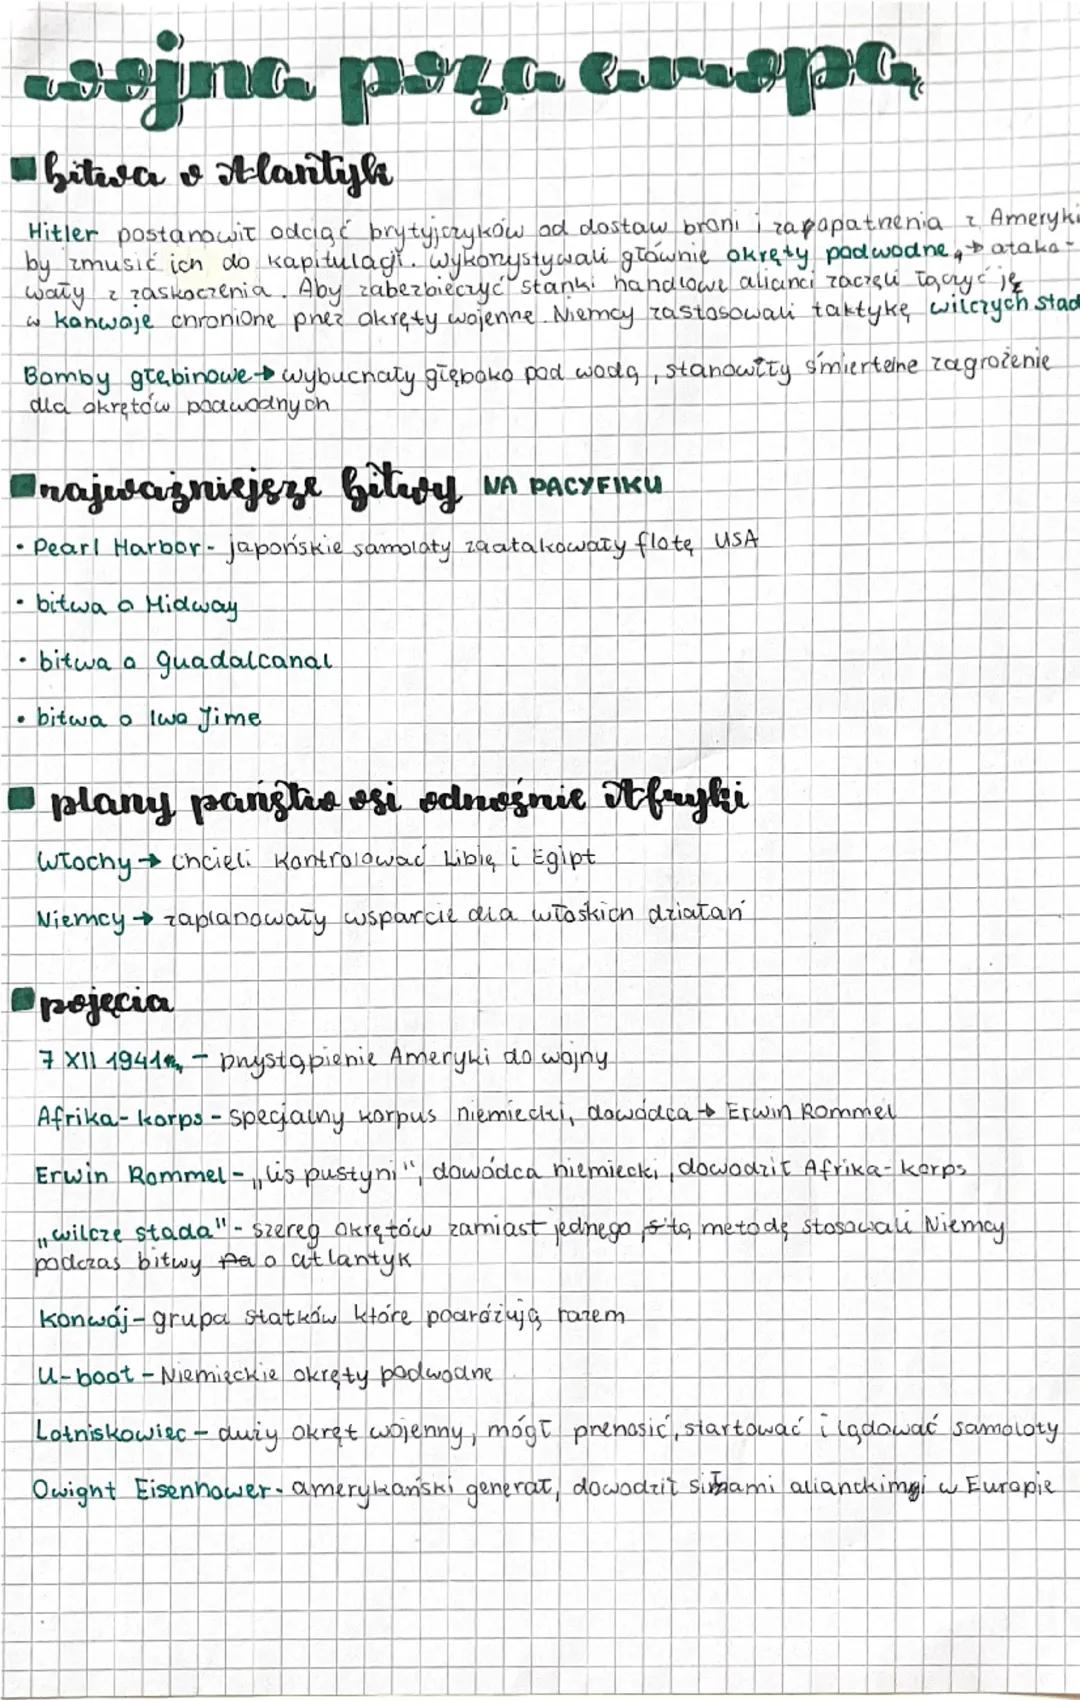 wojna poza europą
bitwa o Atlantyk
Hitler postanowił odciąć brytyjczyków od dostaw broni i zapopatrnenia z Ameryki
by zmusić ich do kapitulacji. Wykorzystywali głównie okręty podwodne, → atako-
wały z zaskoczenia. Aby zabezbieczyć stanki handlowe alianci zaczęli łączyć je
w kanwoje chronione przez okręty wojenne. Niemcy zastosowali taktykę wilczych stad
Bomby głębinowe → wybuchały głęboko pod wodą, stanowiły śmiertelne zagrożenie
dla okrętów podwodnych
najważniejsze bitwy NA PACYFIKU
• Pearl Harbor - japońskie samoloty zaatakowały flotę USA
• bitwa o Midway
• bitwa o guadalcanal
• bitwa o Iwo Jime
plany państw osi odnośnie Afryki
Włochy → chcieli kontrolować Libię i Egipt
Niemcy → zaplanowały wsparcie dla włoskich działań
pojęcia
7 XII 1941r. - przystąpienie Ameryki do wojny
Afrika-korps - specjalny korpus niemiecki, dowódca → Erwin Rommel
Erwin Rommel - „lis pustyni", dowódca niemiecki, dowodził Afrika-korps
„wilcze stada" - szereg okrętów zamiast jednego, tą metodę stosowali Niemcy
podczas bitwy o atlantyk
Konwój - grupa statków które podróżują razem
U-boot - Niemieckie okręty podwodne
Lotniskowiec - duży okręt wojenny, mógł prenosić, startować i lądować samoloty
Dwight Eisenhower - amerykański generał, dowodził siłami alianckimi w Europie